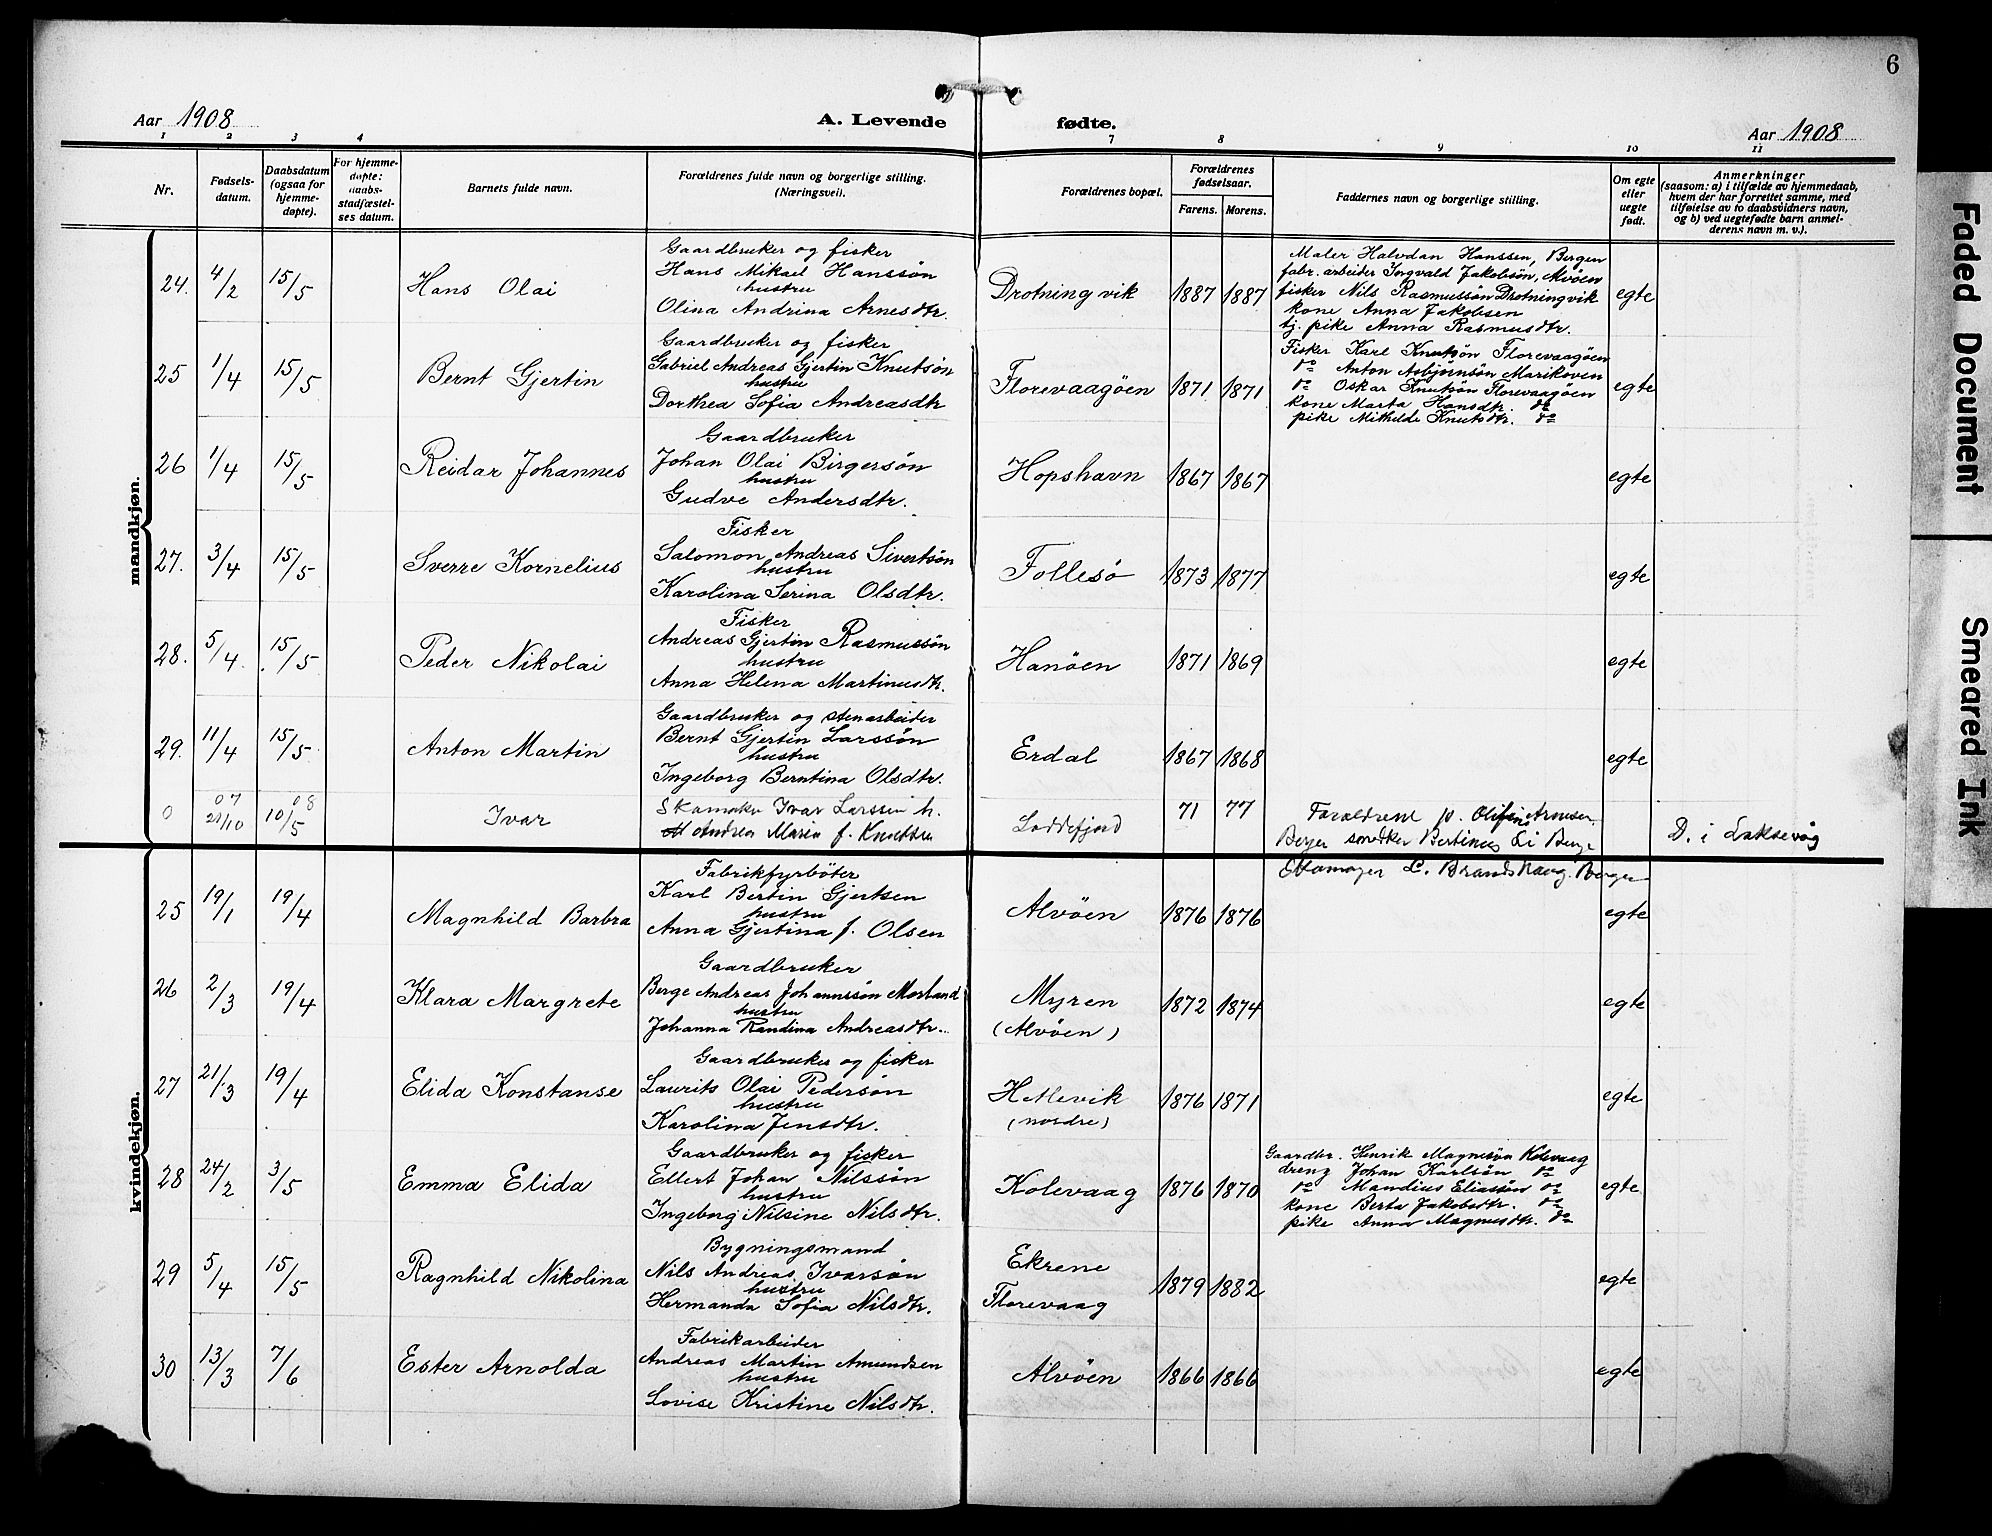 6
Aar 1908
A. Levende fødte.
Aar 1908
1 2 3 4 7 8 9 10 11
Nr.
Fødsels-
datum.
Daabsdatum
(ogsaa for
hjemme-
døpte).
For hjemme-
døpte:
daabs-
stadfæstel-
ses datum.
Barnets fulde navn.
Forældrenes fulde navn og borgerlige stilling.
(Næringsvei).
Forældrenes bopæl.
Forældrenes
fødselsaar.
Farens. Morens.
Faddernes navn og borgerlige stilling.
Om egte
eller
uegte
født.
Anmerkninger
(saasom: a) i tilfælde av hjemmedaab,
hvem der har forrettet samme, med
tilføielse av to daabsvidners navn,
og b) ved uegtefødte barn anmel-
derens navn m. v.).
mandkjøn.
24. 4/2 15/5 Hans Olai
Gaardbruker og fisker
Hans Mikael Hanssøn
hustru
Olina Andrina Arnesdtr.
Drotningvik 1887 1887
Maler Halvdan Hanssen, Bergen
fabr. arbeider Ingvald Jakobsøn, Alvøen
fisker Nils Rasmussøn Drotningvik
kone Anna Jakobsen
tj. pike Anna Rasmusdtr.
egte
25 1/4 15/5 Bernt Gjertin
Gaardbruker og fisker
Gabriel Andreas Gjertin Knutsøn
hustru
Dorthea Sofia Andreasdtr
Florevaagøen 1871 1871
Fisker Karl Knutsøn Florevaagøen
do Anton Asbjørnsøn Marikoven
do Oskar Knutsøn Florevaagøen
kone Marta Hansdtr. do
pike Mithilde Knutsdtr. do
egte
26 1/4 15/5 Reidar Johannes
Gaardbruker
Johan Olai Birgersøn
hustru
Gudve Andersdtr.
Hopshavn 1867 1867 egte
27. 3/4 15/5 Sverre Kornelius
Fisker
Salomon Andreas Sivertsøn
hustru
Karolina Serina Olsdtr.
Follesø 1873 1877 egte
28. 5/4 15/5 Peder Nikolai
Fisker
Andreas Gjertin Rasmussøn
hustru
Anna Helena Martinusdtr.
Hanøen 1871 1869 egte
29. 11/4 15/5 Anton Martin
Gaardbruker og stenarbeider
Bernt Gjertin Larssøn
hustru
Ingeborg Berntina Olsdtr.
Erdal 1867 1868 egte
0 07 10 08 10/5 Ivar
Ivar Larssen h.
Andrea Maria f. Knutsen
Loddefjord 71 77
Forældrene Arnesen
Bertinus Li
D. i Laksevåg
kvindekjøn.
25 19/1 19/4 Magnhild Barbra
Fabrikfyrbøter
Karl Bertin Gjertsen
hustru
Anna Gjertina f. Olsen
Alvøen 1876 1876
L. Brandshaug. Bergen
egte
26 2/3 19/4 Klara Margrete
Gaardbruker
Berge Andreas Johannssøn Morland
hustru
Johanna Randina Andreasdtr.
Myren
(Alvøen)
1872 1874 egte
27 21/3 19/4 Elida Konstanse
Gaardbruker og fisker
Laurits Olai Pedersøn
hustru
Karolina Jensdtr.
Hetlevik
(nordre)
1876 1871 egte
28 24/2 3/5 Emma Elida
Gaardbruker og fisker
Ellert Johan Nilssøn
hustru
Ingeborg Nilsine Nilsdtr.
Kolevaag 1876 1870
Gaardbr. Henrik Magnesøn Kolevaag
dreng Johan Karlsøn do
do Mandius Eliassøn do
kone Berta Jakobsdtr. do
pike Anna Magnusdtr. do
egte
29 5/4 15/5 Ragnhild Nikolina
Bygningsmand
Nils Andreas Ivarsøn
hustru
Hermanda Sofia Nilsdtr.
Ekrene
Florevaag
1879 1882 egte
30 13/3 7/6 Ester Arnolda
Fabrikarbeider
Andreas Martin Amundsen
hustru
Lovise Kristine Nilsdtr.
Alvøen 1866 1866 egte
Faded Document
Smeared Ink